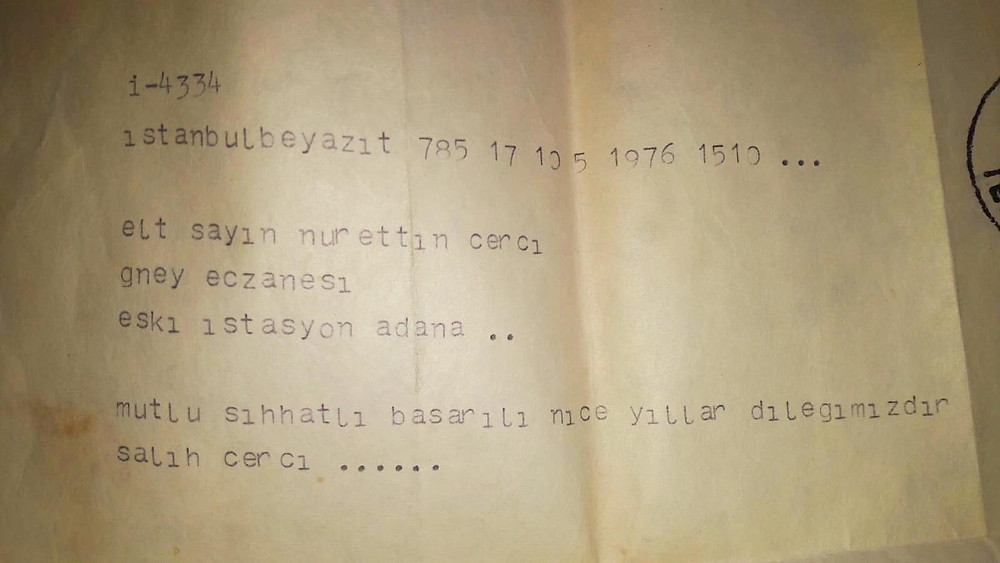 i-4334
ıstanbulbeyazıt 785 17 10 5 1976 1510 ...
elt sayın nurettın cercı
gney eczanesı
eskı ıstasyon adana ..
mutlu sıhhatlı basarılı nıce yıllar dılegımızdır
salıh cercı ......